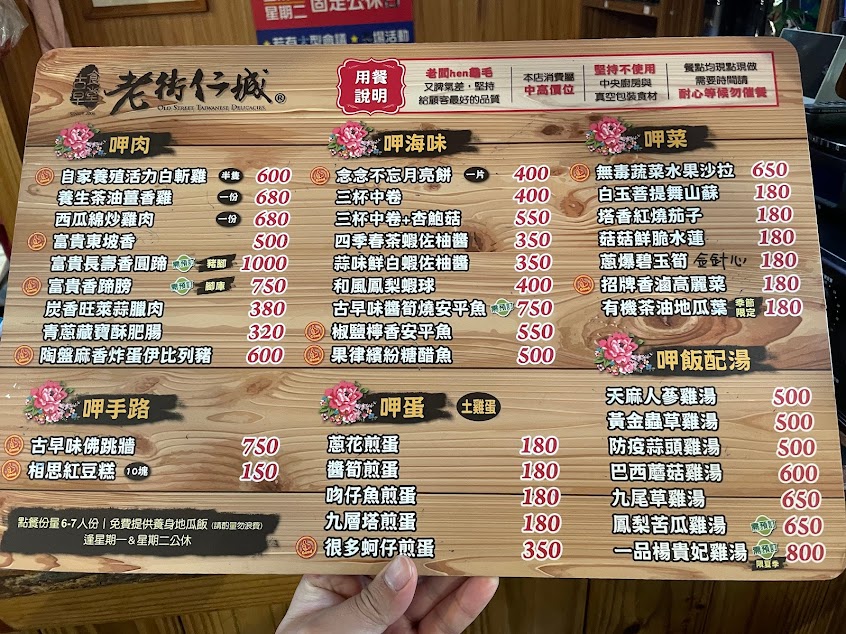 星期二 固定公休日
★若有大型會議★一場活動
老街仔城®
OLD STREET TAIWANESE DELICACIES
用餐
說明
老闆hen龜毛
又脾氣差，堅持
給顧客最好的品質
本店消費屬
中高價位
堅持不使用
中央廚房與
真空包裝食材
餐點均現點現做
需要時間請
耐心等候勿催餐
呷肉
自家養殖活力白斬雞 半隻 600
養生茶油薑香雞 一份 680
西瓜綿炒雞肉 一份 680
富貴東坡香 500
富貴長壽香圓蹄 需預訂 豬腳 1000
富貴香蹄膀 需預訂 腳庫 750
炭香旺萊蒜臘肉 380
青蔥藏寶酥肥腸 320
陶盤麻香炸蛋伊比列豬 600
呷手路
古早味佛跳牆 750
相思紅豆糕 10塊 150
點餐份量 6-7人份｜免費提供養身地瓜飯 (請酌量勿浪費)
逢星期一&星期二公休
呷海味
念念不忘月亮餅 一片 400
三杯中卷 400
三杯中卷+杏鮑菇 550
四季春茶蝦佐柚醬 350
蒜味鮮白蝦佐柚醬 350
和風鳳梨蝦球 400
古早味醬筍燒安平魚 需預訂 750
椒鹽檸香安平魚 550
果律繽紛糖醋魚 500
呷蛋 土雞蛋
蔥花煎蛋 180
醬筍煎蛋 180
吻仔魚煎蛋 180
九層塔煎蛋 180
很多蚵仔煎蛋 350
呷菜
無毒蔬菜水果沙拉 650
白玉菩提舞山蘇 180
塔香紅燒茄子 180
菇菇鮮脆水蓮 180
蔥爆碧玉筍 金針心 180
招牌香滷高麗菜 180
有機茶油地瓜葉 季節限定 180
呷飯配湯
天麻人蔘雞湯 500
黃金蟲草雞湯 500
防疫蒜頭雞湯 500
巴西蘑菇雞湯 600
九尾草雞湯 650
鳳梨苦瓜雞湯 需預訂 650
一品楊貴妃雞湯 需預訂 限夏季 800